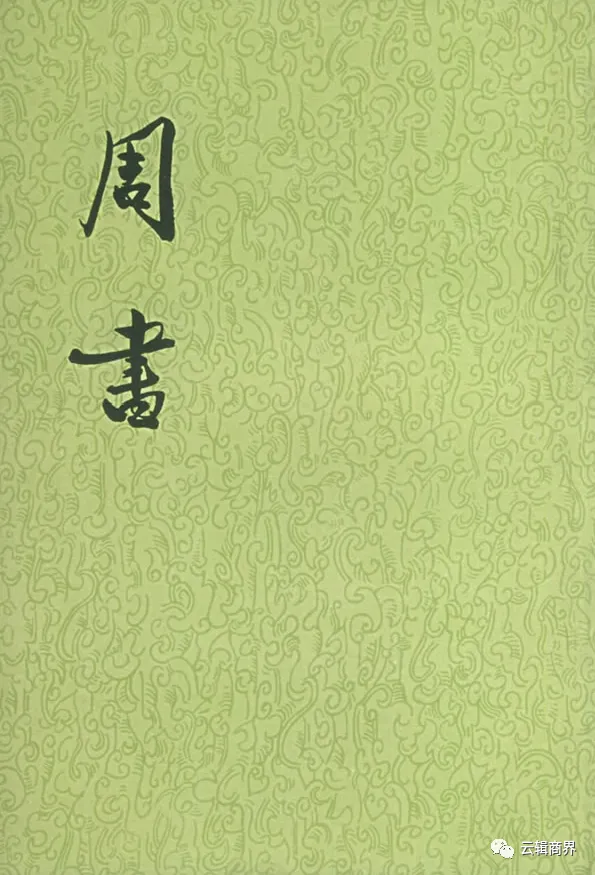 周書
云辑商界